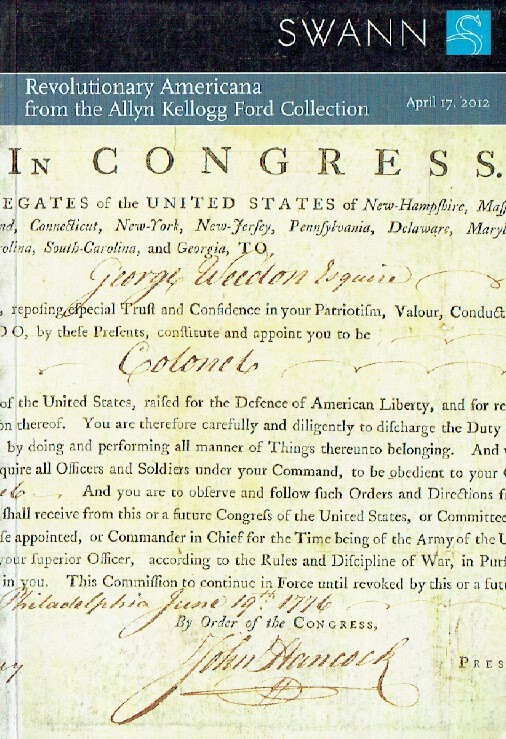 SWANN
Revolutionary Americana
from the Allyn Kellogg Ford Collection
April 17, 2012
IN CONGRESS.
EGATES of the UNITED STATES of New-Hampſhire, Maſſ
nd, Connecticut, New-York, New-Jerſey, Pennſylvania, Delaware, Maryl
rolina, South-Carolina, and Georgia, TO
George Weedon Esquire
, repoſing eſpecial Truſt and Confidence in your Patriotiſm, Valour, Conduct
DO, by theſe Preſents, conſtitute and appoint you to be
Colonel
of the United States, raiſed for the Defence of American Liberty, and for re
on thereof. You are therefore carefully and diligently to diſcharge the Duty
by doing and performing all manner of Things thereunto belonging. And
quire all Officers and Soldiers under your Command, to be obedient to your
And you are to obſerve and follow ſuch Orders and Directions f
ſhall receive from this or a future Congreſs of the United States, or Committee
ſe appointed, or Commander in Chief for the Time being of the Army of the U
your ſuperior Officer, according to the Rules and Diſcipline of War, in Purſ
in you. This Commiſſion to continue in Force until revoked by this or a futu
Philadelphia June 19th 1776
By Order of the CONGRESS,
John Hancock
PRES